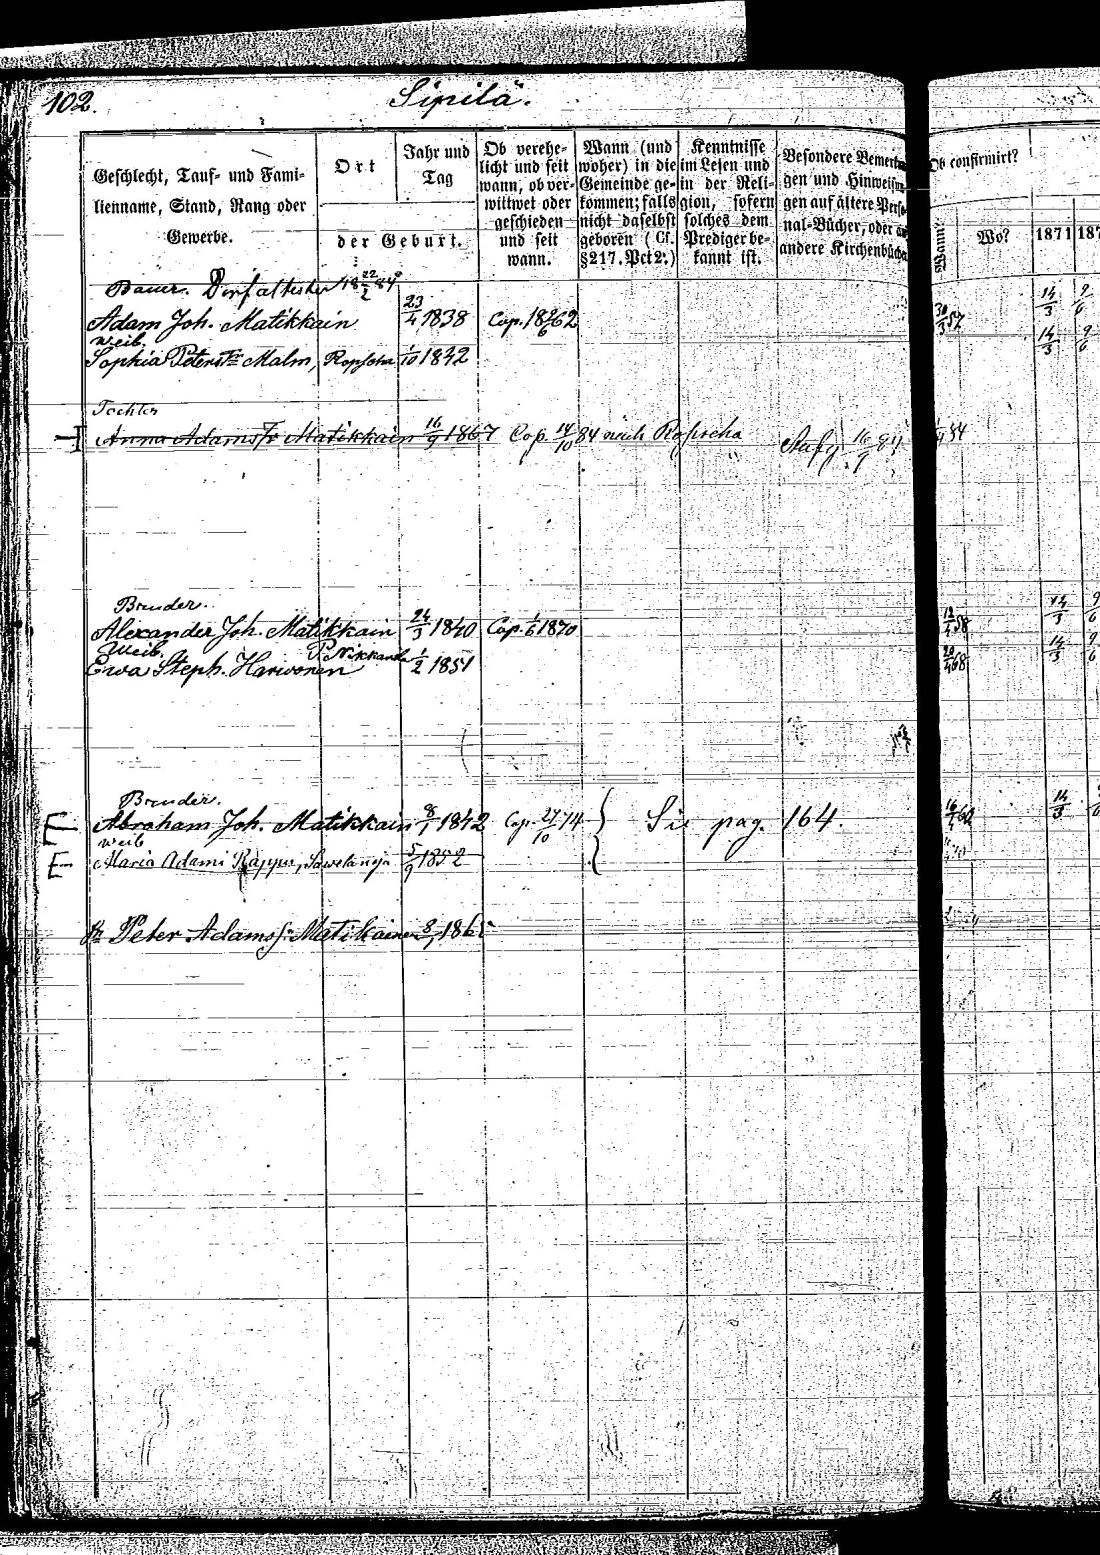 102.
Sipilä.
Geschlecht, Tauf- und Fami-
lienname, Stand, Rang oder
Gewerbe.
Ort
Jahr und
Tag
der Geburt.
Ob verehe-
licht und seit
wann, ob ver-
wittwet oder
geschieden
und seit
wann.
Wann (und
woher) in die
Gemeinde ge-
kommen; falls
nicht daselbst
geboren (Cf.
§217. Pct 2.)
Kenntnisse
im Lesen und
in der Reli-
gion, sofern
solches dem
Prediger be-
kannt ist.
Besondere Bemerkun
gen und Hinweisun
gen auf ältere Perso
nal-Bücher, oder
andere Kirchenbüche
Ob confirmirt?
Wann?
Wo?
1871
187
Bauer. Dorfältester 18 22/2 84
Adam Joh. Matikkain 23/4 1838 Cop. 18 6 62 30/3 57 14/3 9/6
weib.
Sophia Peterstr Malm, Ropscha 1/10 1842 14/3 9/6
Tochter
Anna Adamstr Matikkain 16/9 1867 Cop. 14/10 84 nach Ropscha 16/9 84 84
Bruder.
Alexander Joh. Matikkain 24/3 1840 Cop. 1/6 1870 58 14/3 9/6
Weib. P. Nikkanda
Ewa Steph. Harwonen 1/2 1851 68 14/3 9/6
Bruder.
Abraham Joh. Matikkain 8/1 1842 Cop. 27/10 74 } Sie pag. 164. 14/3
weib
Maria Adami Rappu, 5/9 1852
Peter Adamss. Matikainen 8/1 186